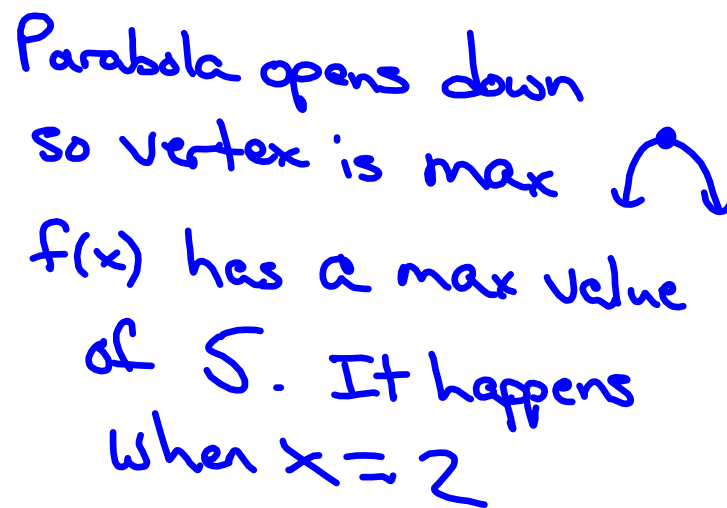 Parabola opens down
so vertex is max
f(x) has a max value
of 5. It happens
when x = 2